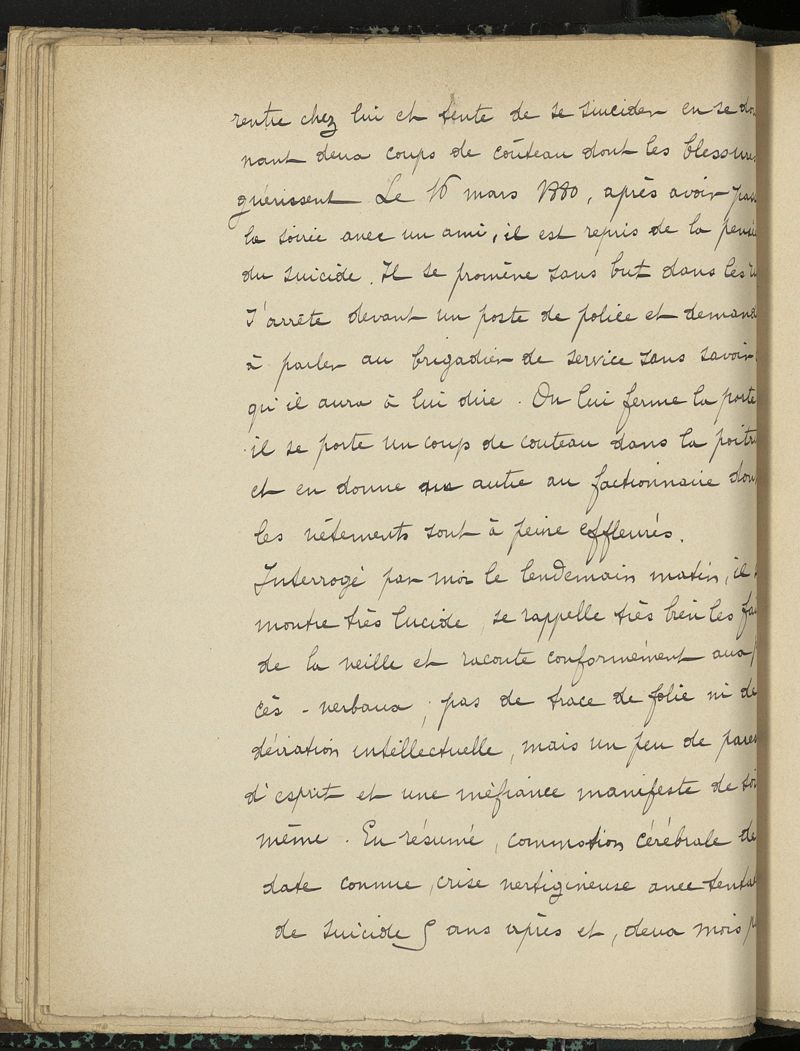 rentre chez lui et tente de se suicider en se don
nant deux coups de coûteau dont les blessures
guérissent Le 16 mars 1880, après avoir pass
la soirée avec un ami, il est repris de la pensé
du suicide. Il se promène sans but dans les
s'arrête devant un poste de police et demand
à parler au brigadier de service sans savoir
qu'il aura à lui dire. On lui ferme la porte
il se porte un coup de couteau dans la poitr
et en donne un autre au factionnaire don
les vêtements sont à peine effleurés.
Interrogé par moi le lendemain matin, il
montre très lucide, se rappelle très bien les fai
de la veille et raconte conformément aux p
cès-verbaux; pas de trace de folie ni de
déviation intellectuelle, mais un peu de pares
d'esprit et une méfiance manifeste de soi
même. En résumé, commotion cérébrale de
date connue, crise vertigineuse avec tenta
de suicide 5 ans après et, deux mois p